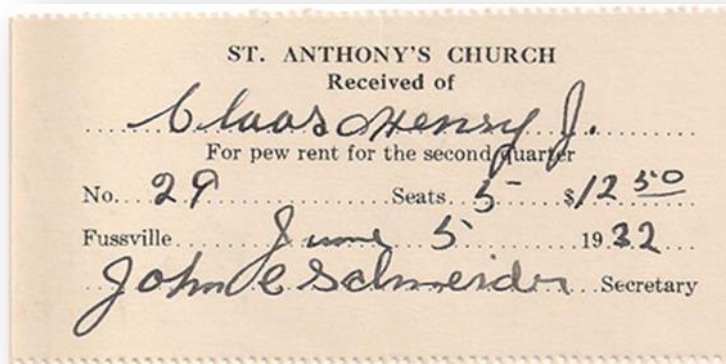 ST. ANTHONY'S CHURCH
Received of
Claas Henry J.
For pew rent for the second quarter
No. 29 Seats 5 $12 50
Fussville June 5 1932
John C Schneider Secretary